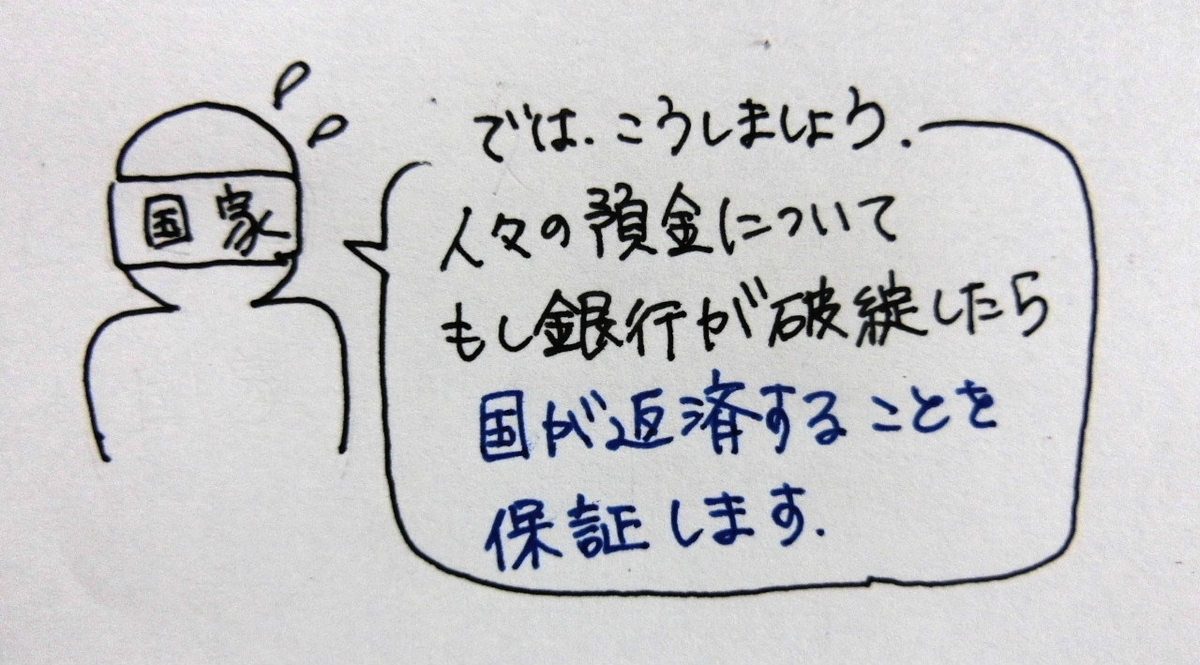 国家
では、こうしましょう.
人々の預金について
もし銀行が破綻したら
国が返済することを
保証します.